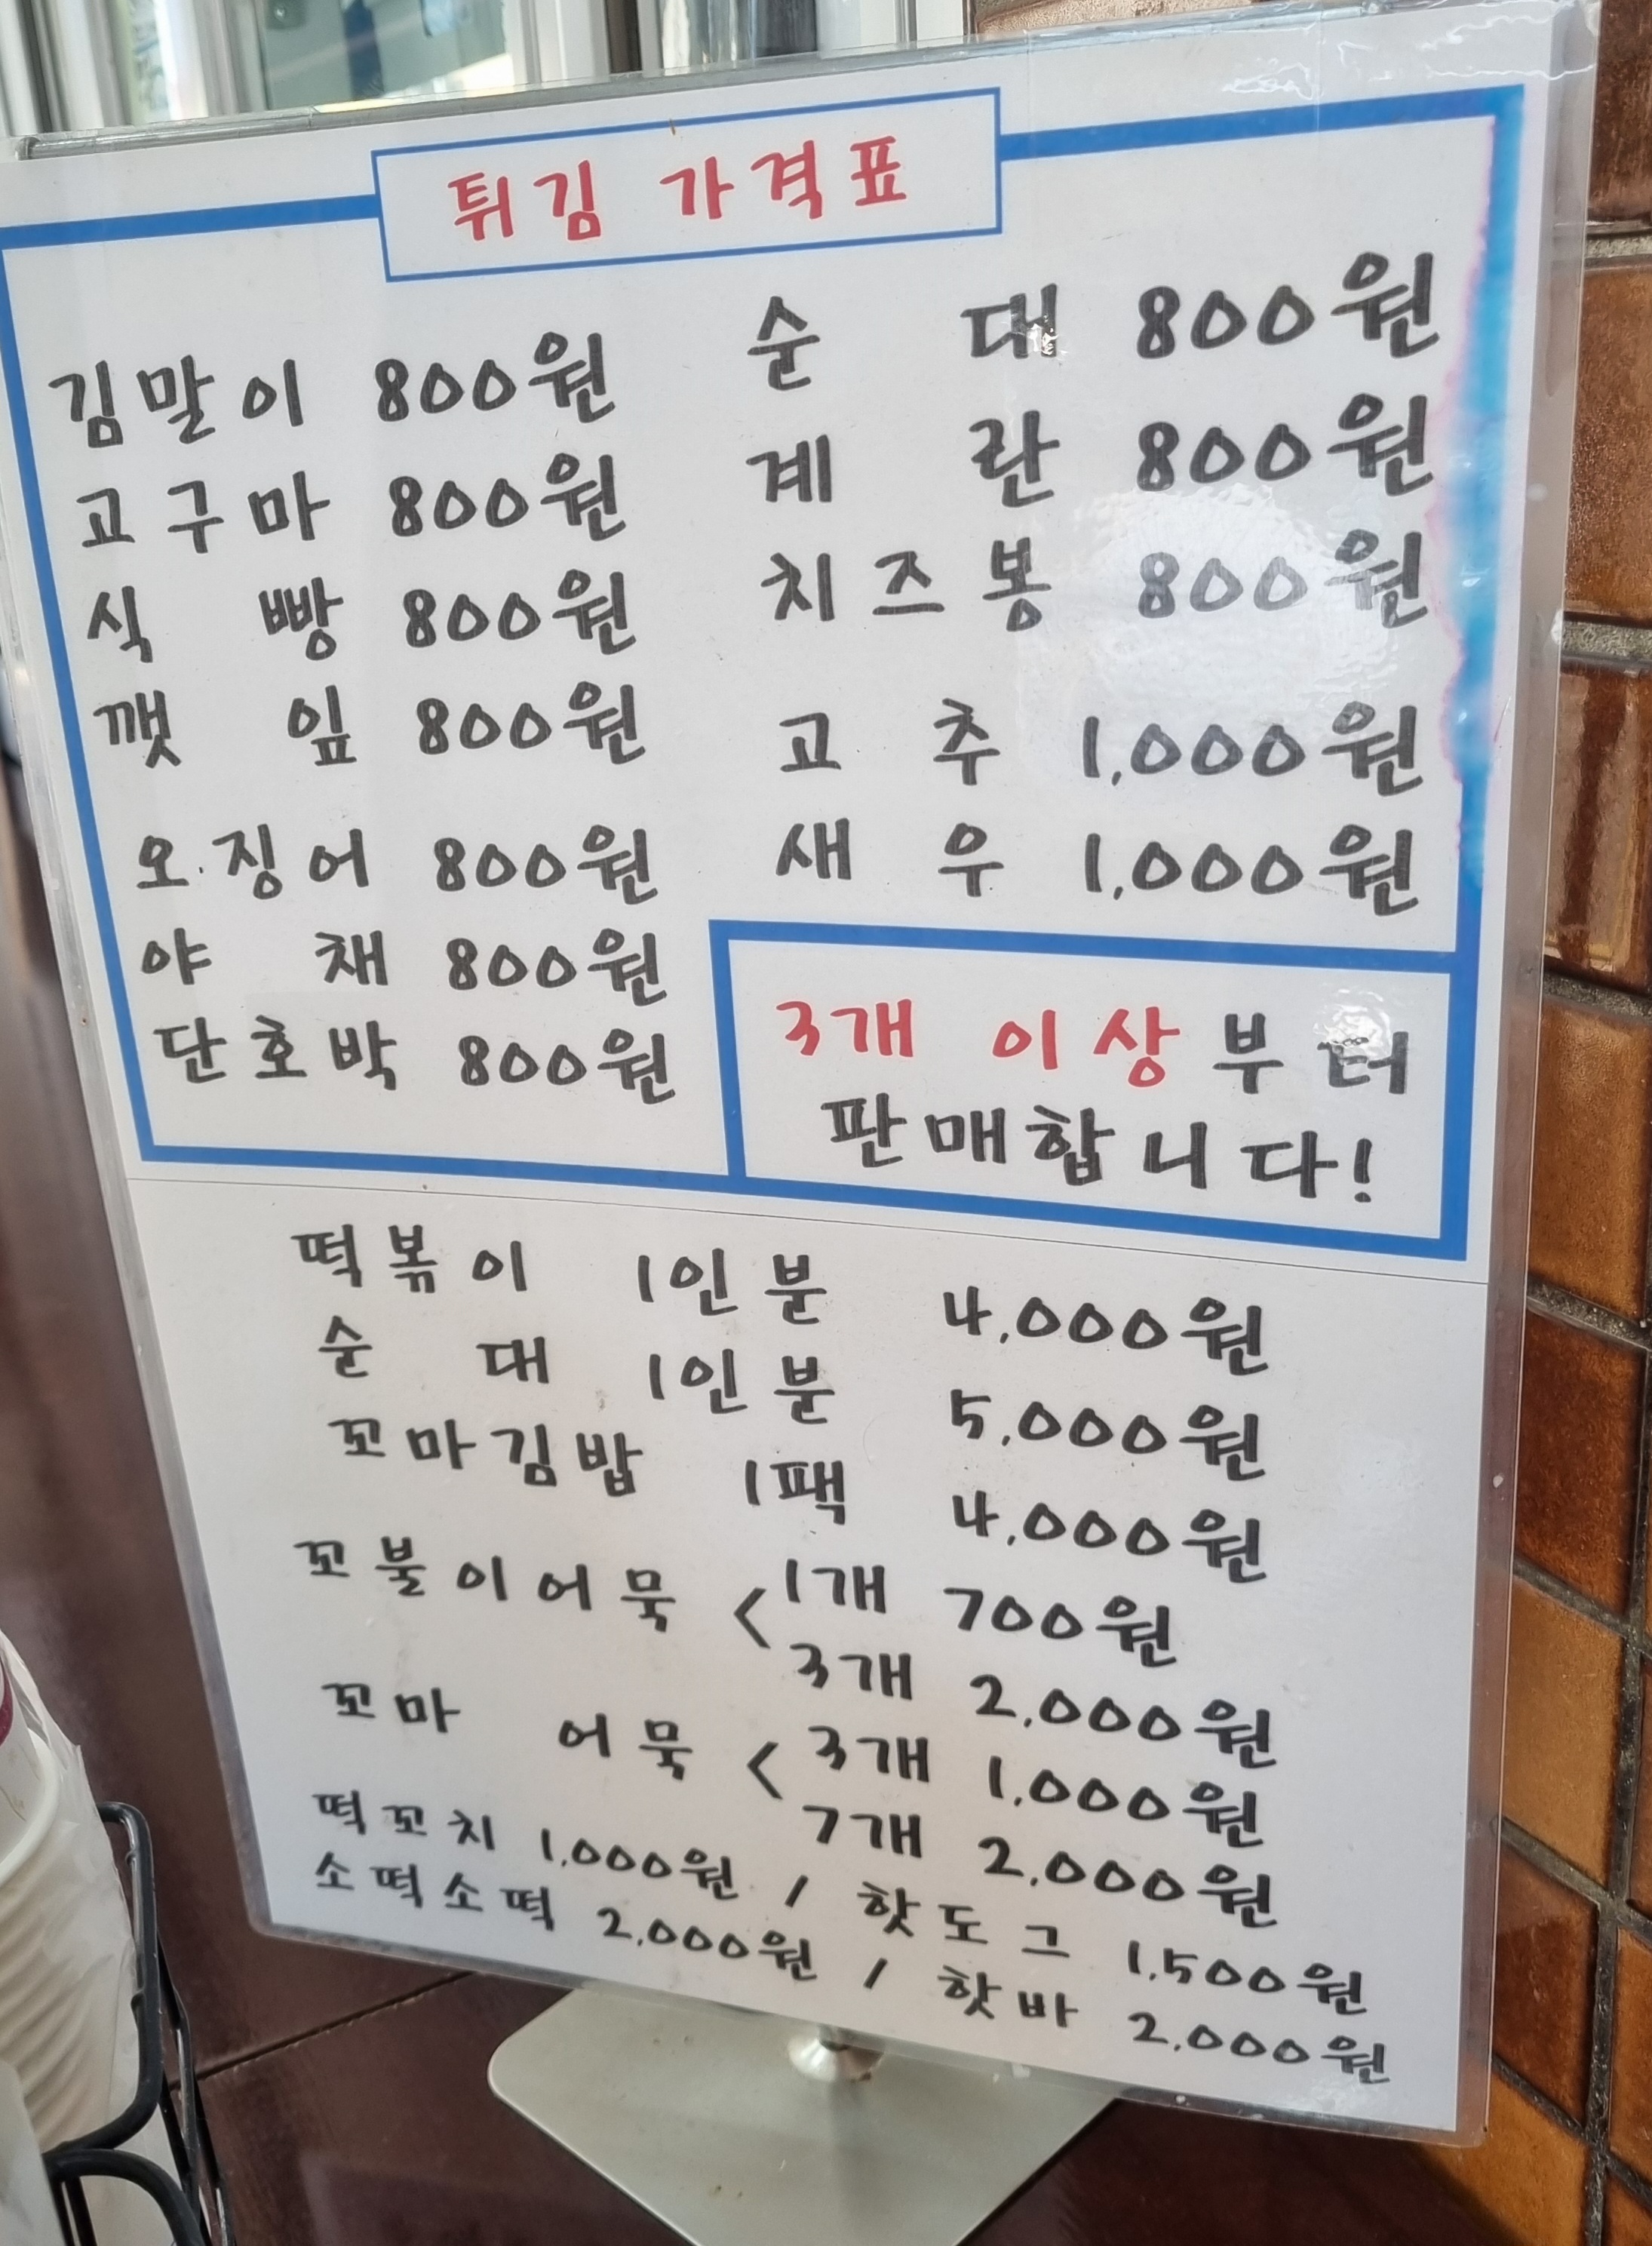 튀김 가격표
김말이 800원
고구마 800원
식빵 800원
깻잎 800원
오징어 800원
야채 800원
단호박 800원
순대 800원
계란 800원
치즈봉 800원
고추 1,000원
새우 1,000원
3개 이상부터
판매합니다!
떡볶이 1인분 4,000원
순대 1인분 5,000원
꼬마김밥 1팩 4,000원
꼬불이어묵 < 1개 700원
3개 2,000원
꼬마 어묵 < 3개 1,000원
7개 2,000원
떡꼬치 1,000원 / 핫도그 1,500원
소떡소떡 2,000원 / 핫바 2,000원